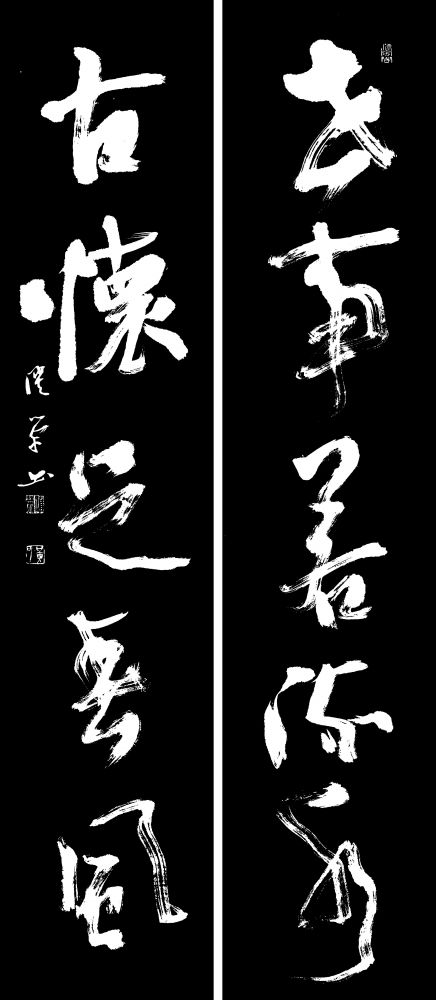 世事若流水
古懷足春風